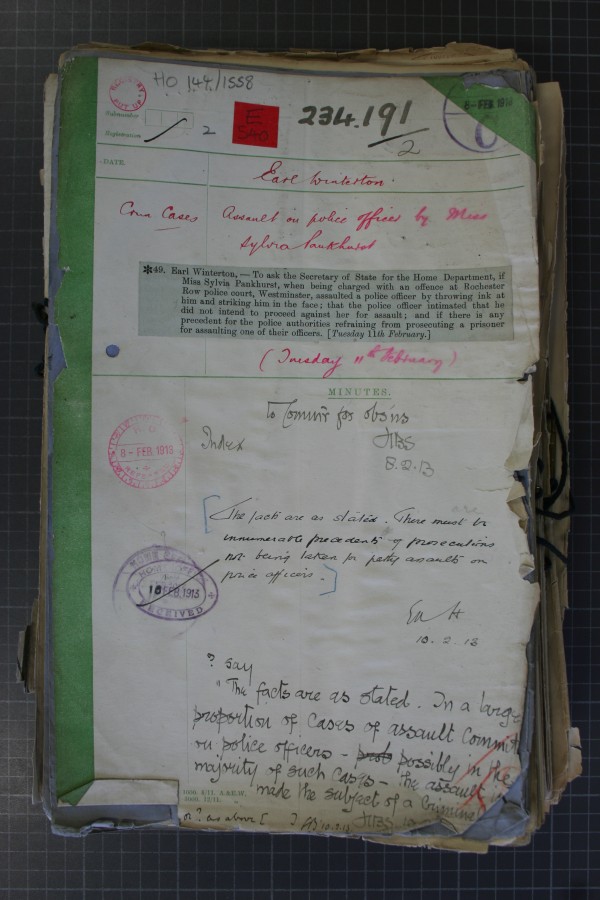 HO 144/1558
8-FEB.1913
6
Submission
Registration
2
E
540
234.191
2
DATE.
Earl Winterton.
Crim Cases
Assault on police officer by Miss
Sylvia Pankhurst
*49. Earl Winterton,—To ask the Secretary of State for the Home Department, if
Miss Sylvia Pankhurst, when being charged with an offence at Rochester
Row police court, Westminster, assaulted a police officer by throwing ink at
him and striking him in the face; that the police officer intimated that he
did not intend to proceed against her for assault; and if there is any
precedent for the police authorities refraining from prosecuting a prisoner
for assaulting one of their officers. [Tuesday 11th February.]
(Tuesday 11th February)
MINUTES.
To Commr for obs'ns
Index
HBS
8.2.13
8-FEB.1913
[The facts are as stated. There must be
innumerable precedents of prosecutions
not being taken for petty assaults on
police officers.]
10 FEB 1913
RECEIVED
10.2.13
? say
"The facts are as stated. In a large
proportion of cases of assault committ
on police officers – possibly in the
majority of such cases – the assault is
made the subject of a criminal
or ? as above [ ]
HBS